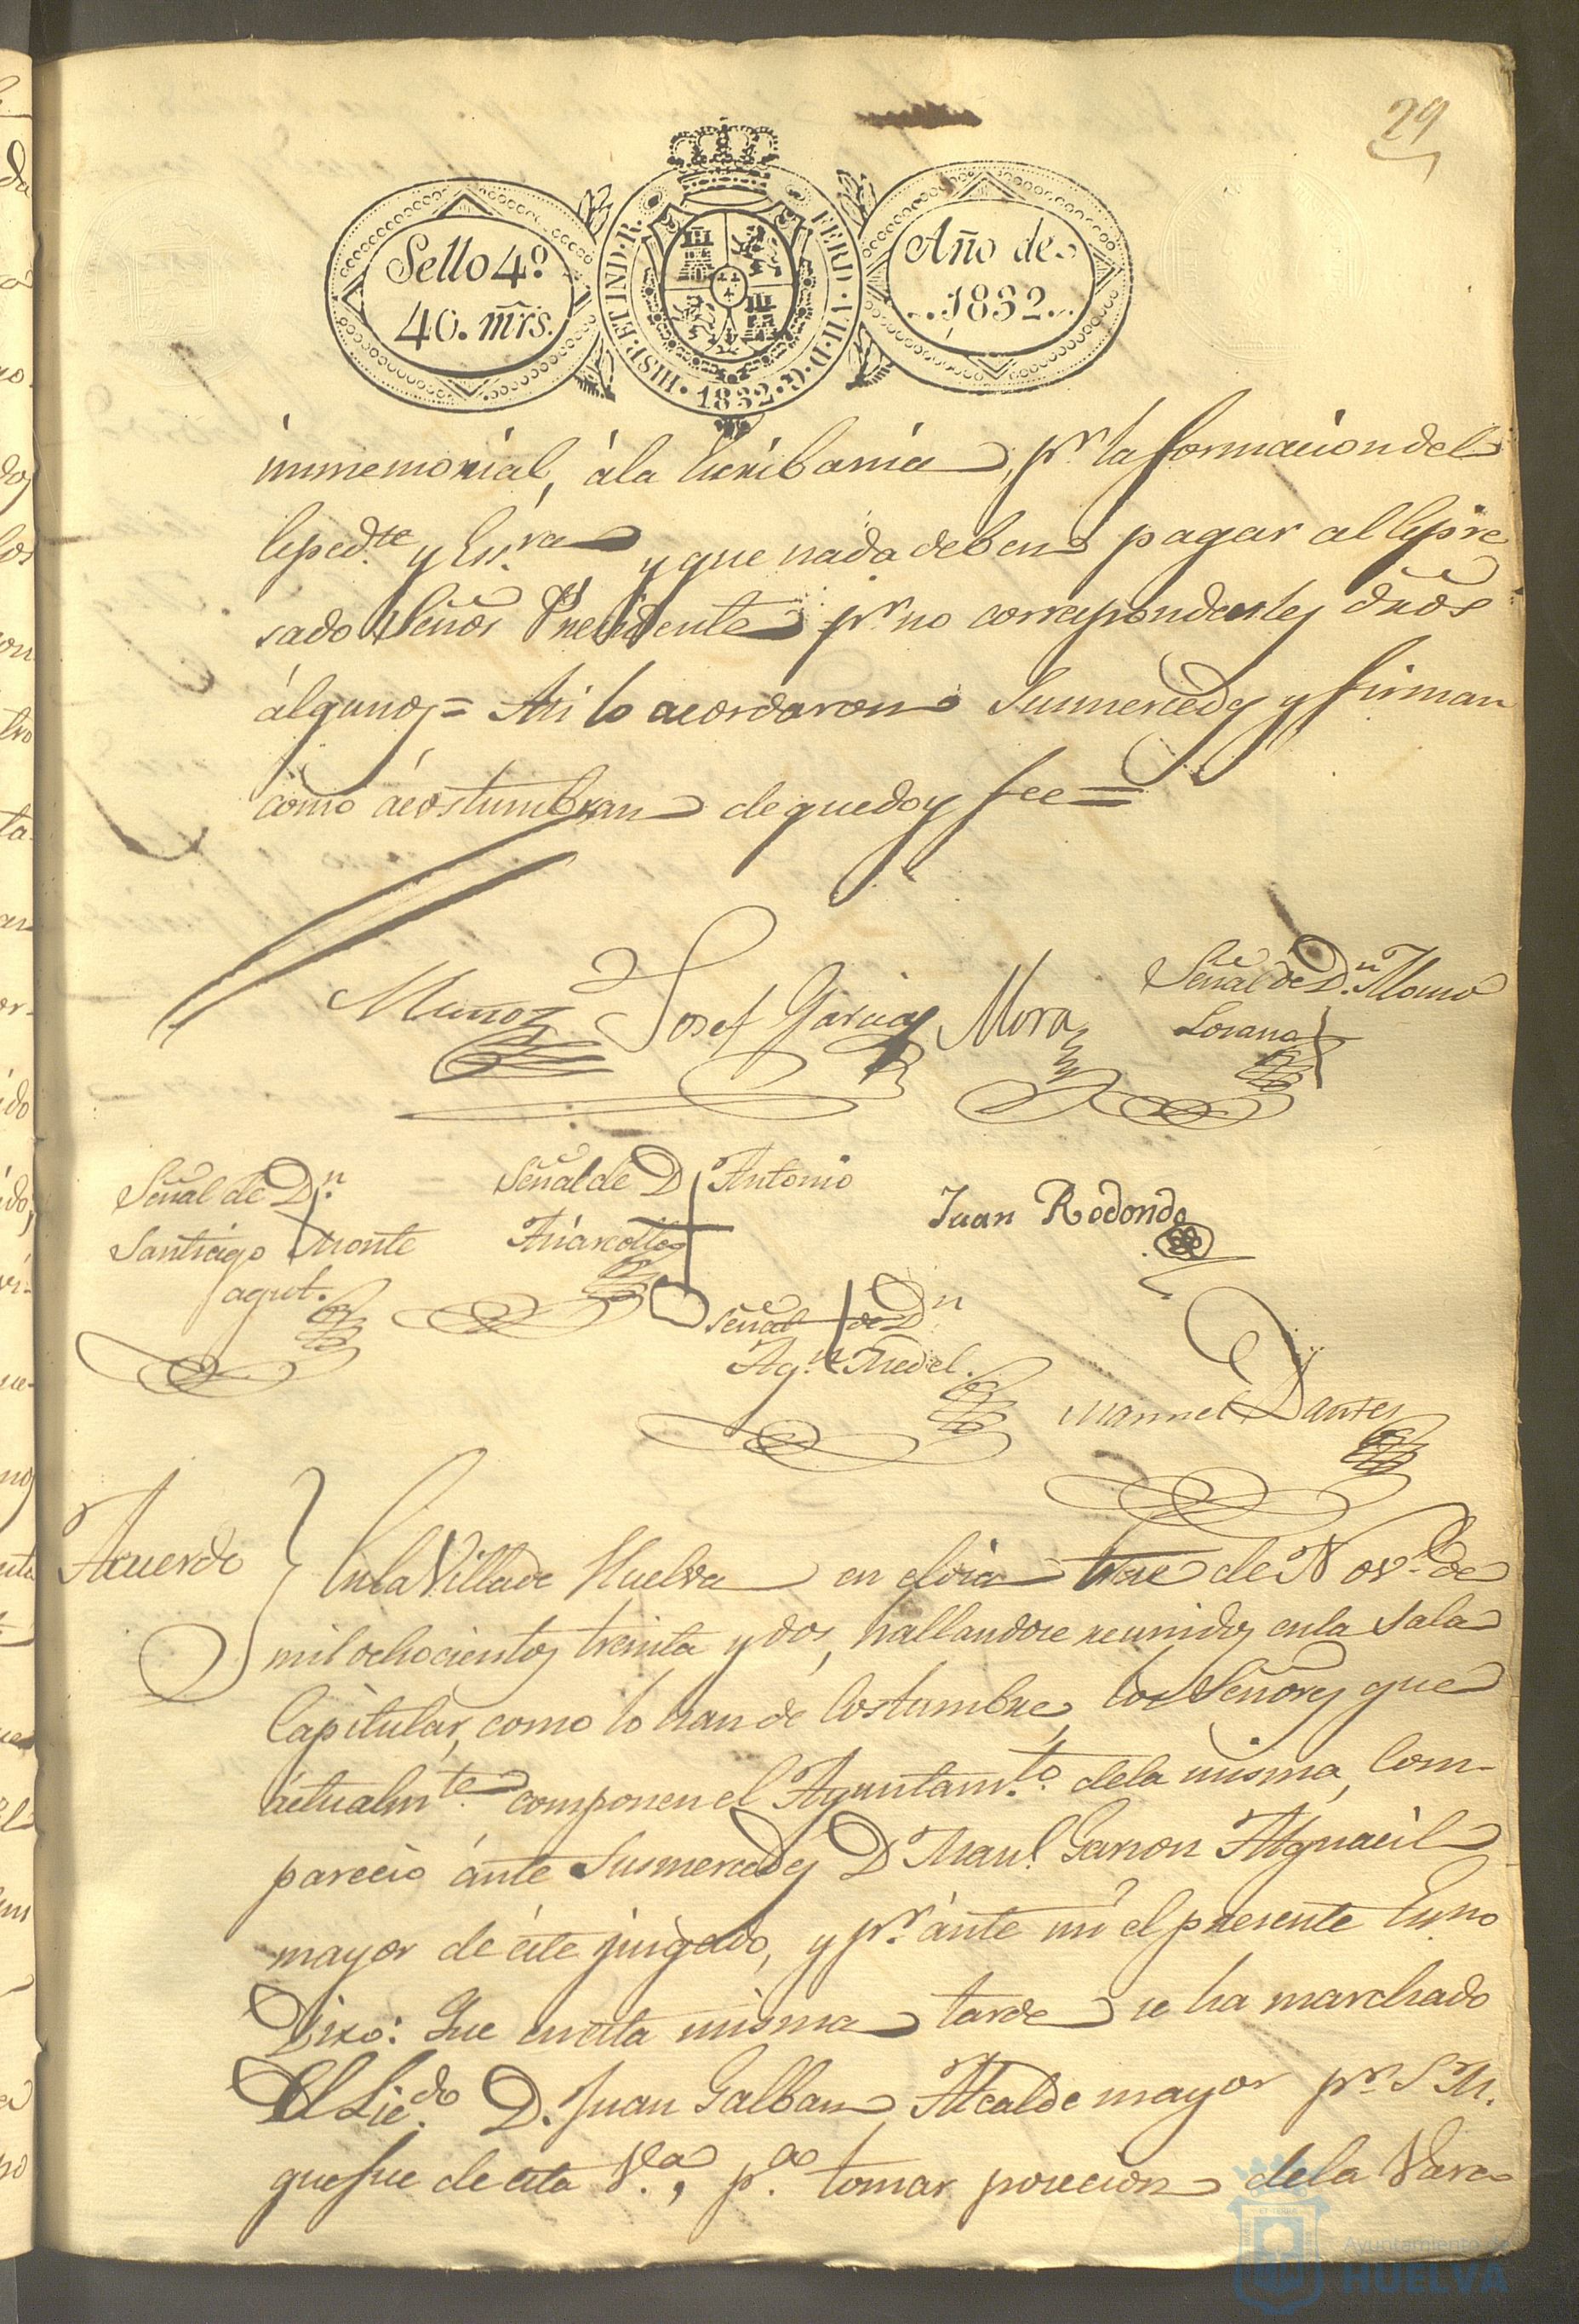 29
Sello 4º
40. mrs.
HISP. ET IND. R.
FERD. VII. D. G.
1832.
Año de
1832.
inmemorial, ála Escribania, pr. la formacion del
Exped.te y Esc.ra y que nada deben pagar al Expre
sado Señor Presidente pr. no corresponderles dros
álgunos = Asi lo acordaron Susmercedes y firman
como ácostumbran de que doy fee =
Muñoz
Josef Garcia Mora
Señal de D.n Alonso
Lozano
Señal de D.n
Santiago Monte
agut.
Señal de D Antonio
Juan Redondo
Señal de D.n
Ag.n Medel.
Manuel Dantes
Acuerdo
En la Villa de Huelva en el dia trece de Nov.e de
mil ochocientos treinta y dos, hallandose reunidos en la Sala
Capitular, como lo han de Costumbre, los Señores que
áctualm.te componen el Ayuntam.to dela misma, Com-
parecio ánte Susmercedes D Man.l Garzon Alguacil
mayor de éste juzgado, y pr. ánte mi el presente Esno
Dixo: Que en esta misma tarde se ha marchado
El Lic.do D. Juan Galban Alcalde mayor pr. S.M.
que fue de esta V.a, p.a tomar posecion dela Vara
Ayuntamiento de
HUELVA